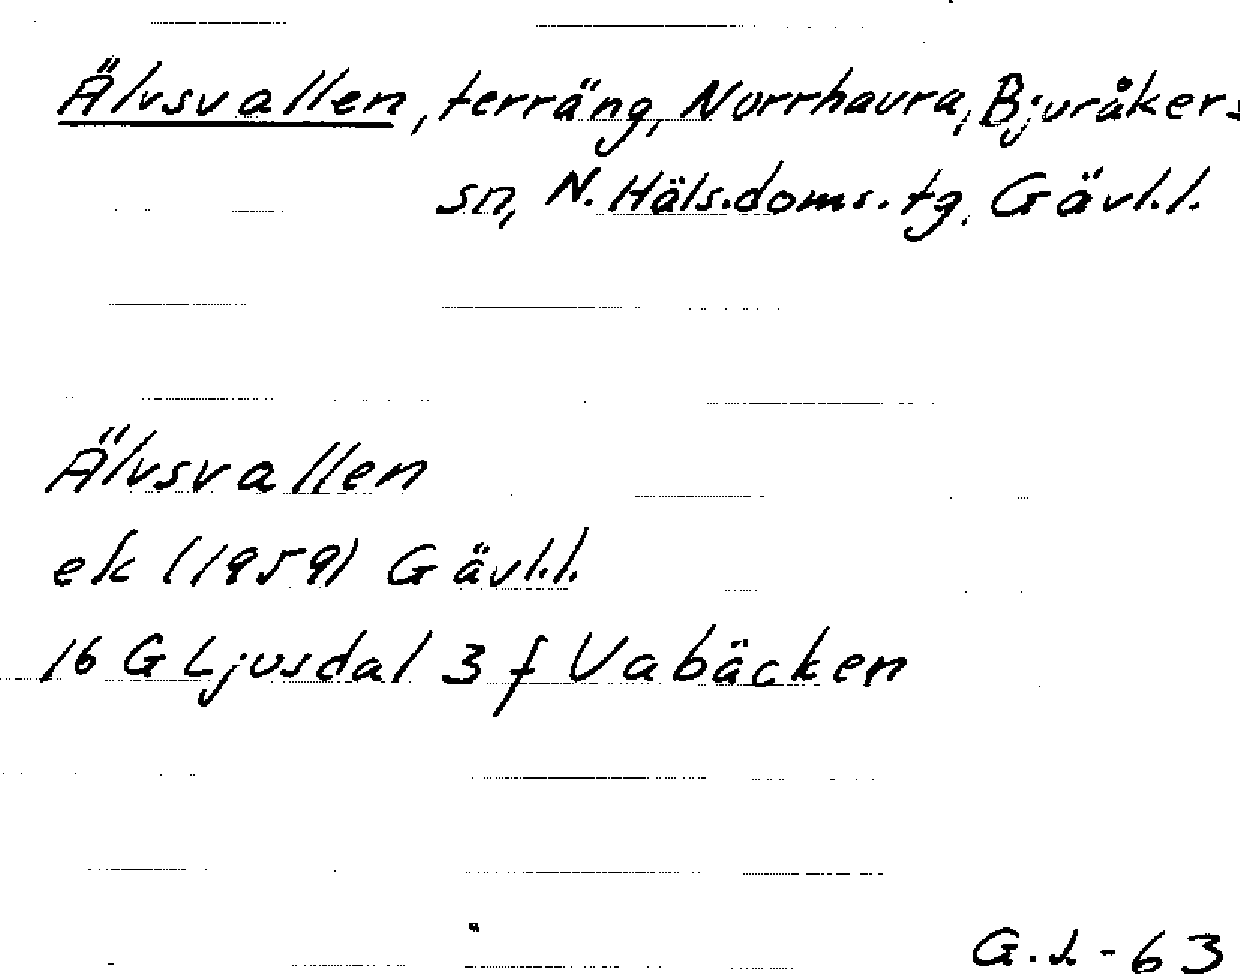 Älvsvallen, terräng, Norrhavra, Bjuråkers
sn, N. Häls. doms. tg, Gävl.l.
Älvsvallen
ek (1959) Gävl.l.
16 G Ljusdal 3 f Vabäcken
G.L-63